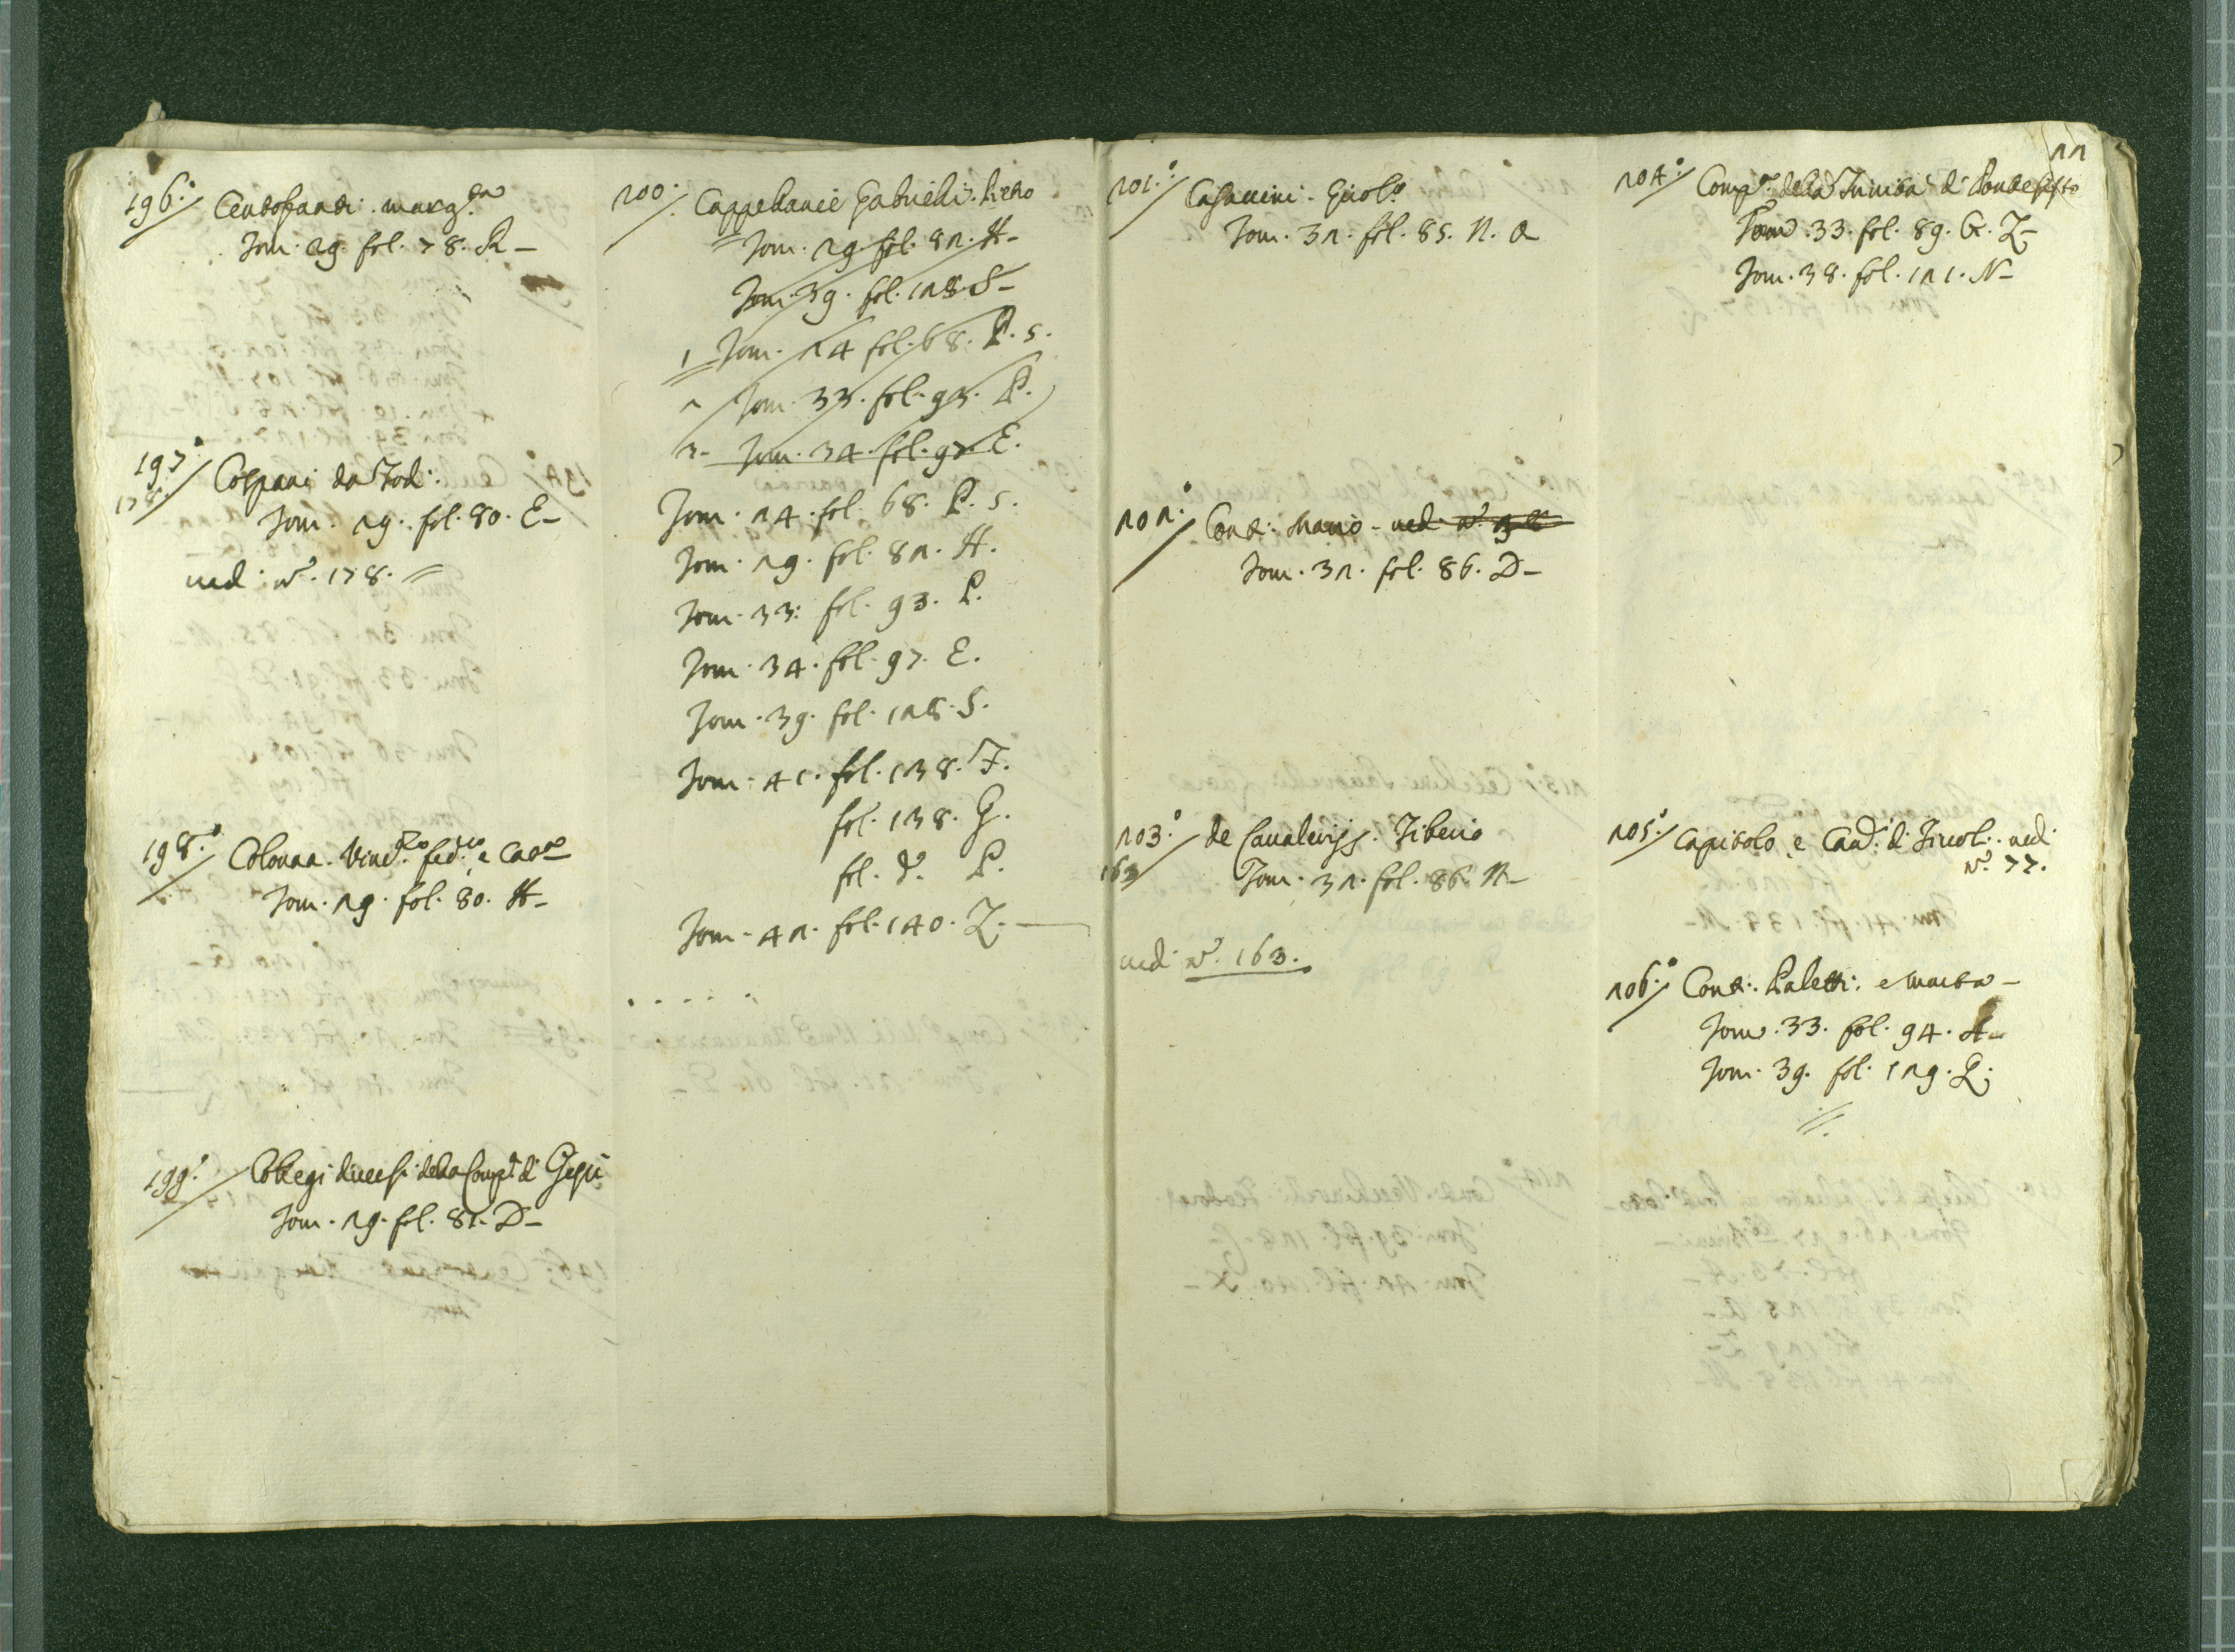 196. Centofanti. marg.ta
Tom. 29. fol. 78. R-
197. Cospani da Todi.
178.
Tom. 29. fol. 80. E-
ved. n.o 178.
198. Colonna. Vinc.zo fed.co, e
Tom. 29. fol. 80. H-
199. Collegi diversi della Comp.a di Giesù
Tom. 29. fol. 81. D-
200. Cappellanie Gabrielli. Pietro
Tom. 29. fol. 82. H-
Tom. 39. fol. 128 S-
1 Tom. 24 fol. 68. P. 5.
2 Tom. 33. fol. 93. P.
3- Tom. 34. fol. 97 E.
Tom. 24. fol. 68. P. 5.
Tom. 29. fol. 82. H.
Tom. 33: fol. 93. P.
Tom. 34. fol. 97. E.
Tom. 39. fol. 128. S.
Tom. 41. fol. 138. F.
fol. 138. G.
fol. d.o P.
Tom. 42. fol. 140. Z.
22
201. Casaccini. Girol.o
Tom. 32. fol. 85. N. A
202. Conti. Mario - ved. n.o
Tom. 32. fol. 86. D-
203. de Cavalerijs. Tiberio
163
Tom. 32. fol. 86. N-
ved. n.o 163.
204. Comp.a della Trinità di Ponte Sisto
Tom. 33. fol. 89. G. Z-
Tom. 38. fol. 121. N-
205. Capitolo, e Can.ci di Tivoli. ved.
n.o 77.
206. Conti. Paletti. e
Tom. 33. fol. 94. A-
Tom. 39. fol. 129. Q.